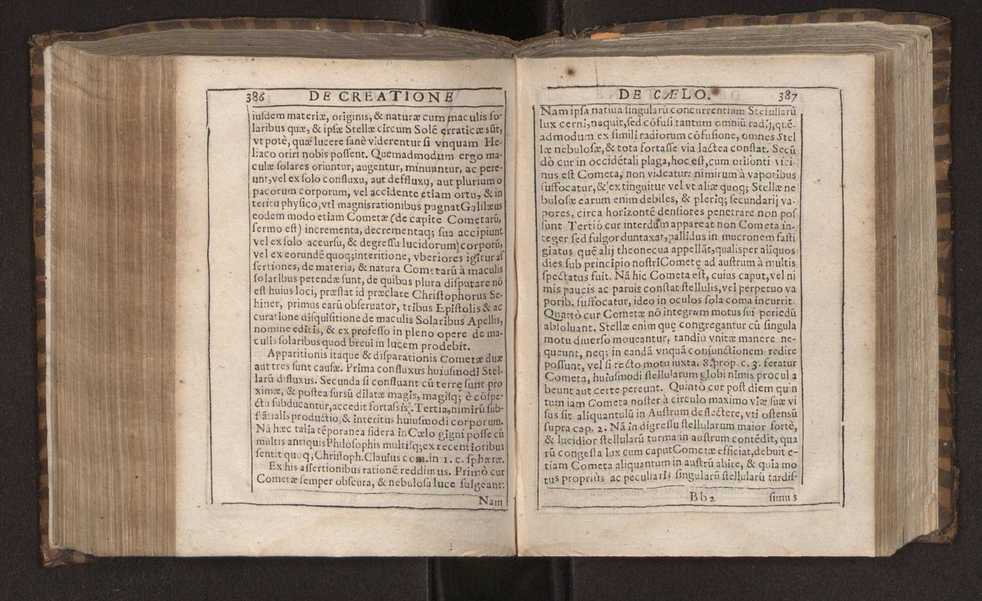 386 DE CREATIONE
iusdem materiæ, originis, & naturæ cum maculis so-
laribus quæ, & ipsæ Stellæ circum Solē erraticæ sūt,
vt potè, quæ lucere sanè viderentur si vnquam He-
liaco oriri nobis possent. Quemadmodum ergo ma-
culæ solares oriuntur, augentur, minuuntur, ac pere-
unt, vel ex solo confluxu, aut deffluxu, aut plurium o
pacorum corporum, vel accidente etiam ortu, & in
teritu physico, vti magnis rationibus pugnat Galilæus
eodem modo etiam Cometæ (de capite Cometarū,
sermo est) incrementa, decrementaq; sua accipiunt
vel ex solo accursu, & degressu lucidorum corporū,
vel ex eorundē quoq; interitione, vberiores igitur as
sertiones, de materia, & natura Cometarū à maculis
solaribus petendæ sunt, de quibus plura disputare nō
est huius loci, præstat id præclare Christophorus Sc-
hiner, primus earū obseruator, tribus Epistolis & ac
curatione disquisitione de maculis Solaribus Apellis,
nomine editis, & ex professo in pleno opere de ma-
culis solaribus quod breui in lucem prodebit.
Apparitionis itaque & disparationis Cometæ duæ
aut tres sunt causæ. Prima confluxus huiusmodi Stel-
larū difluxus. Secunda si confluant cū terræ sunt pro
ximæ, & postea sursū dilatæ magis, magisq; è cōspe-
ctu subducantur, accedit fortassis. Tertia, nimirū sub-
stātialis productio, & interitus huiusmodi corporum.
Nā hæc talia tēporanea sidera in Cælo gigni posse cū
multis antiquis Philosophis multisq; ex recentioribus
sentit quoq, Christoph. Clauius com. in 1. c. sphæræ.
Ex his assertionibus rationē reddimus. Primò cur
Cometæ semper obscura, & nebulosa luce fulgeant:
Nam
DE CÆLO. 387
Nam ipsa natiua singularū concurrentium Stellularū
lux cerni, nequit, sed cōfusi tantum omniū radij, quē-
admodum ex simili radiorum cōfusione, omnes Stel
læ nebulosæ, & tota fortasse via lactea constat. Secū
dò cur in occidētali plaga, hoc est, cum orisonti vici-
nus est Cometa, non videatur nimirum à vaporibus
suffocatur, & extinguitur vel vt aliæ quoq; Stellæ ne
bulosæ earum enim debiles, & pleriq; secundarij va-
pores, circa horizontē densiores penetrare non pos
sunt Tertiò cur interdum appareat non Cometa in-
teger sed fulgor duntaxat, pallidus in mucronem fasti
giatus quē alij theonecua appellāt, qualis per aliquos
dies sub principio nostri Cometę ad austrum à multis
spectatus fuit. Nā hic Cometa est, cuius caput, vel ni
mis paucis ac paruis constat stellulis, vel perpetuo va
porib. suffocatur, ideo in oculos sola coma incurrit.
Quartò cur Cometæ nō integrum motus sui periodū
absoluant. Stellæ enim quę congregantur cū singula
motu diuerso moueantur, tandiù vnitæ manere ne-
queunt, neq; in eandā vnquā coniunctionem redire
possunt, vel si recto motu iuxta. 8. prop. c. 3. feratur
Cometa, huiusmodi stellularum globi nimis procul a
beunt aut certe pereunt. Quintò cur post diem quin
tum iam Cometa noster à circulo maximo viæ suæ vi
sus sit aliquantulū in Austrum deflectere, vti ostensū
supra cap. 2. Nā in digressu stellularum maior fortè,
& lucidior stellularū turma in austrum contēdit, qua
rū congesta lux cum caput Cometæ efficiat, debuit e-
tiam Cometa aliquantum in austrū abire, & quia mo
tus proprius ac peculiaris singularū stellularū tardis-
Bb2 simus